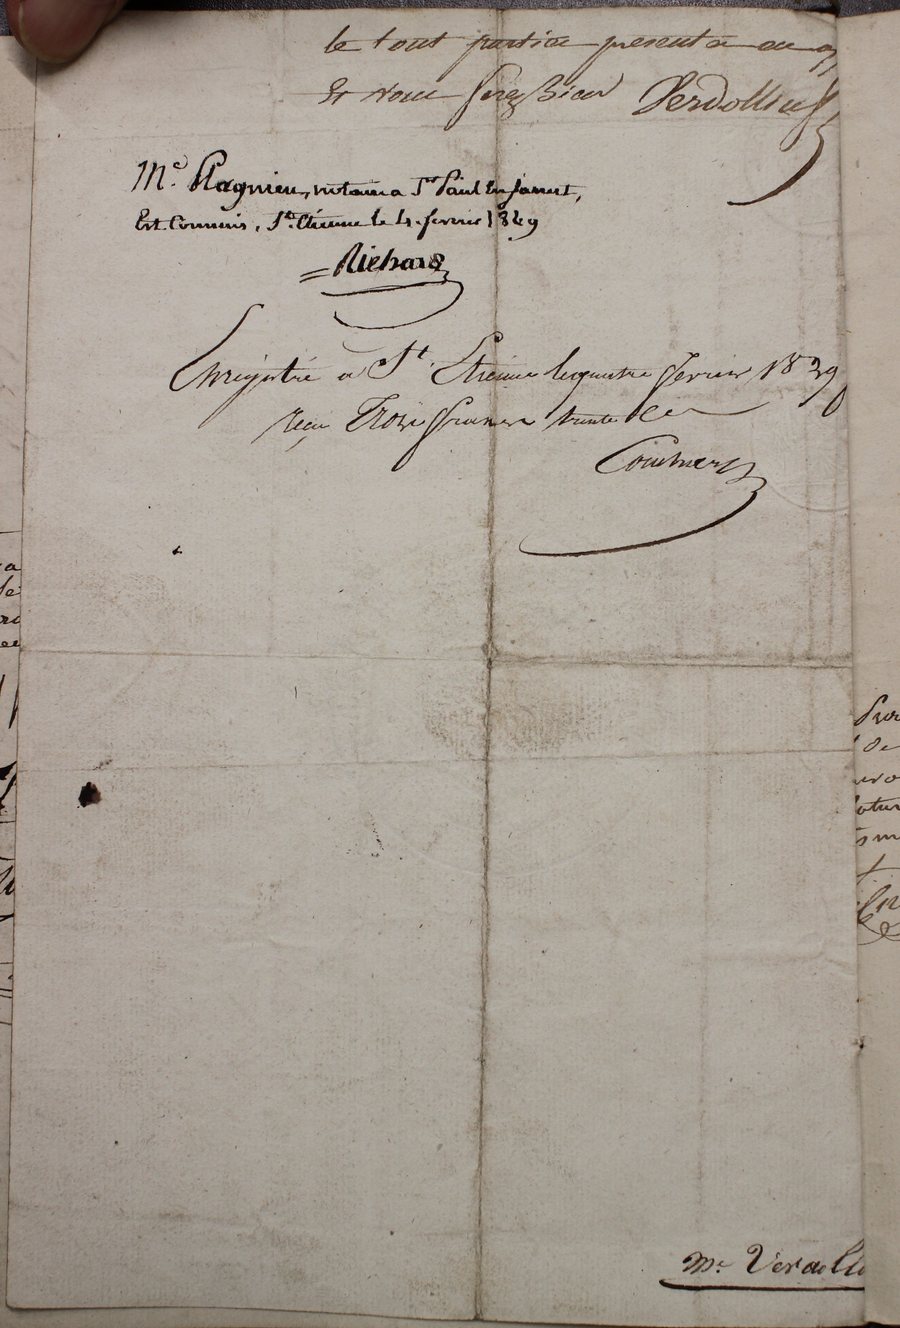 le tout partie presente ou
Et vous ferez bien Verdollin
Me. Plagnieu, notaire a St Paul En Jarret,
Est Commis, St. Etienne le 4. fevrier 1829
Richard
Enregistré a St. Etienne le quatre fevrier 1829
reçu Trois francs trente Ces
Me Verdolli